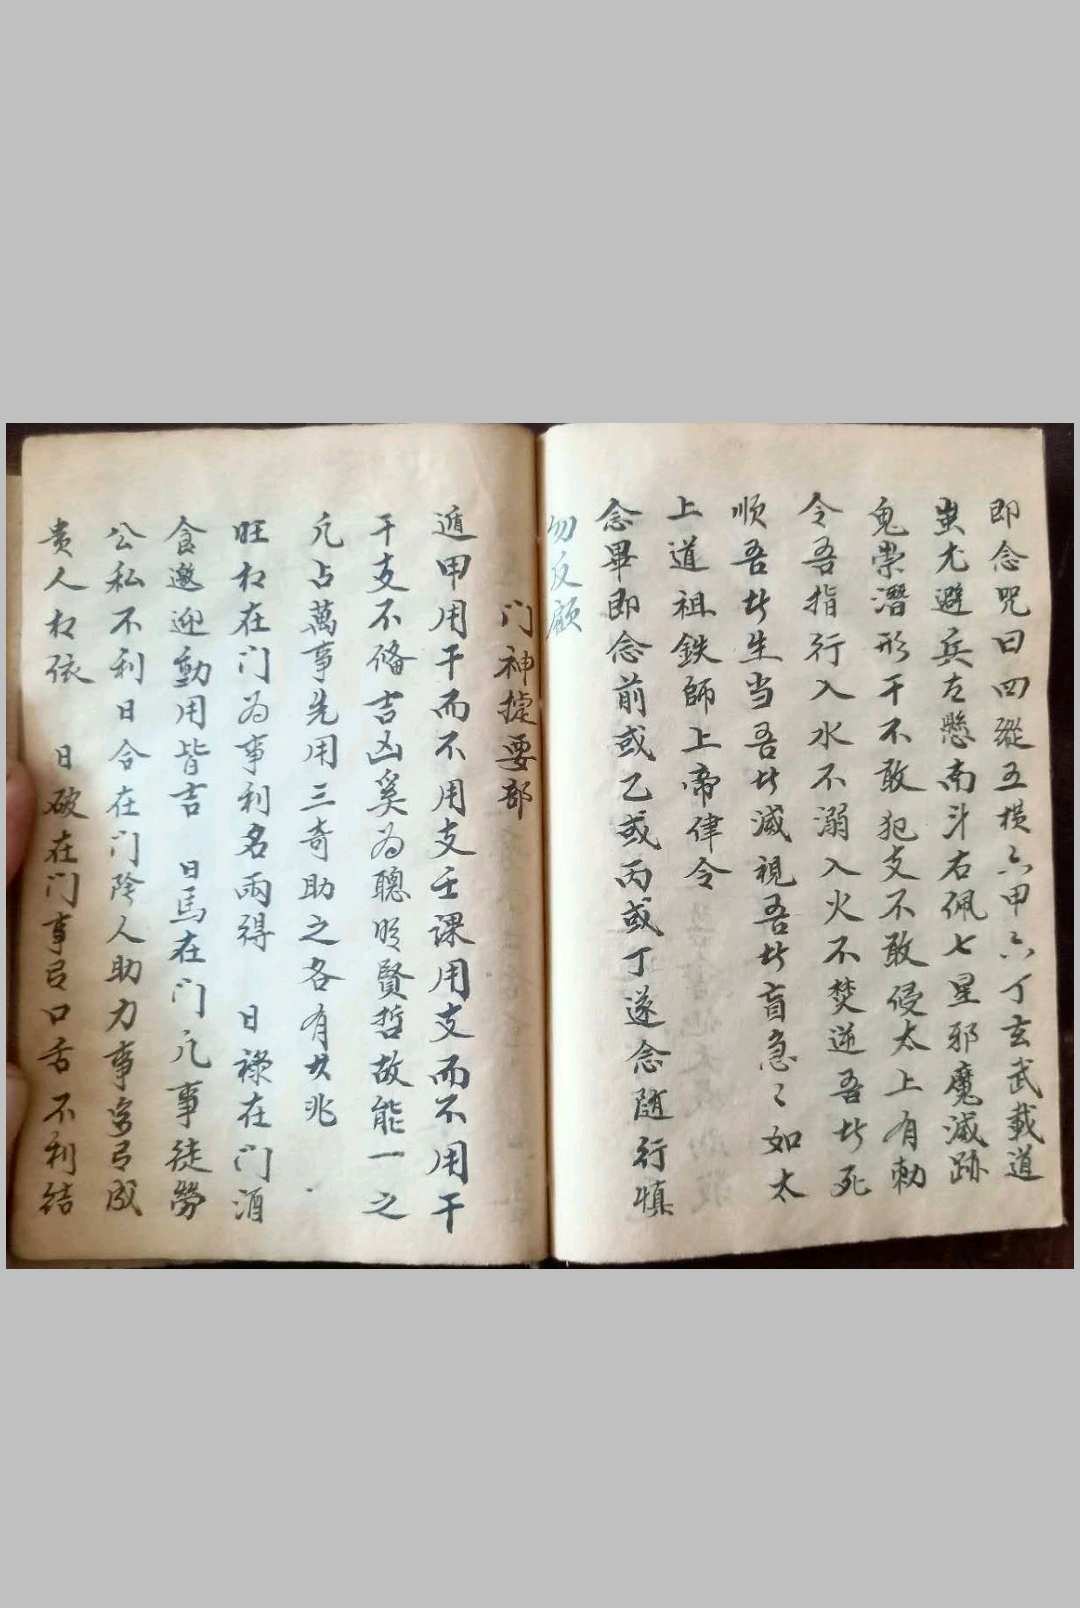 即念咒曰四縱五横六甲六丁玄武載道
蚩尤避兵左懸南斗右佩七星邪魔滅跡
鬼祟潛形干不敢犯支不敢侵太上有勅
令吾指行入水不溺入火不焚逆吾者死
順吾者生当吾者滅視吾者盲急〻如太
上道祖鉄師上帝律令
念畢即念前或乙或丙或丁遂念随行慎
勿反顧
门神捷要部
遁甲用干而不用支壬課用支而不用干
干支不俻吉凶奚为聰明賢哲故能一之
凢占萬事先用三奇助之各有其兆
旺相在门为事利名兩得 日祿在门酒
食邀迎動用皆吉 日馬在门凢事徒勞
公私不利日合在门陰人助力事宜有成
贵人相依 日破在门事有口舌不利結